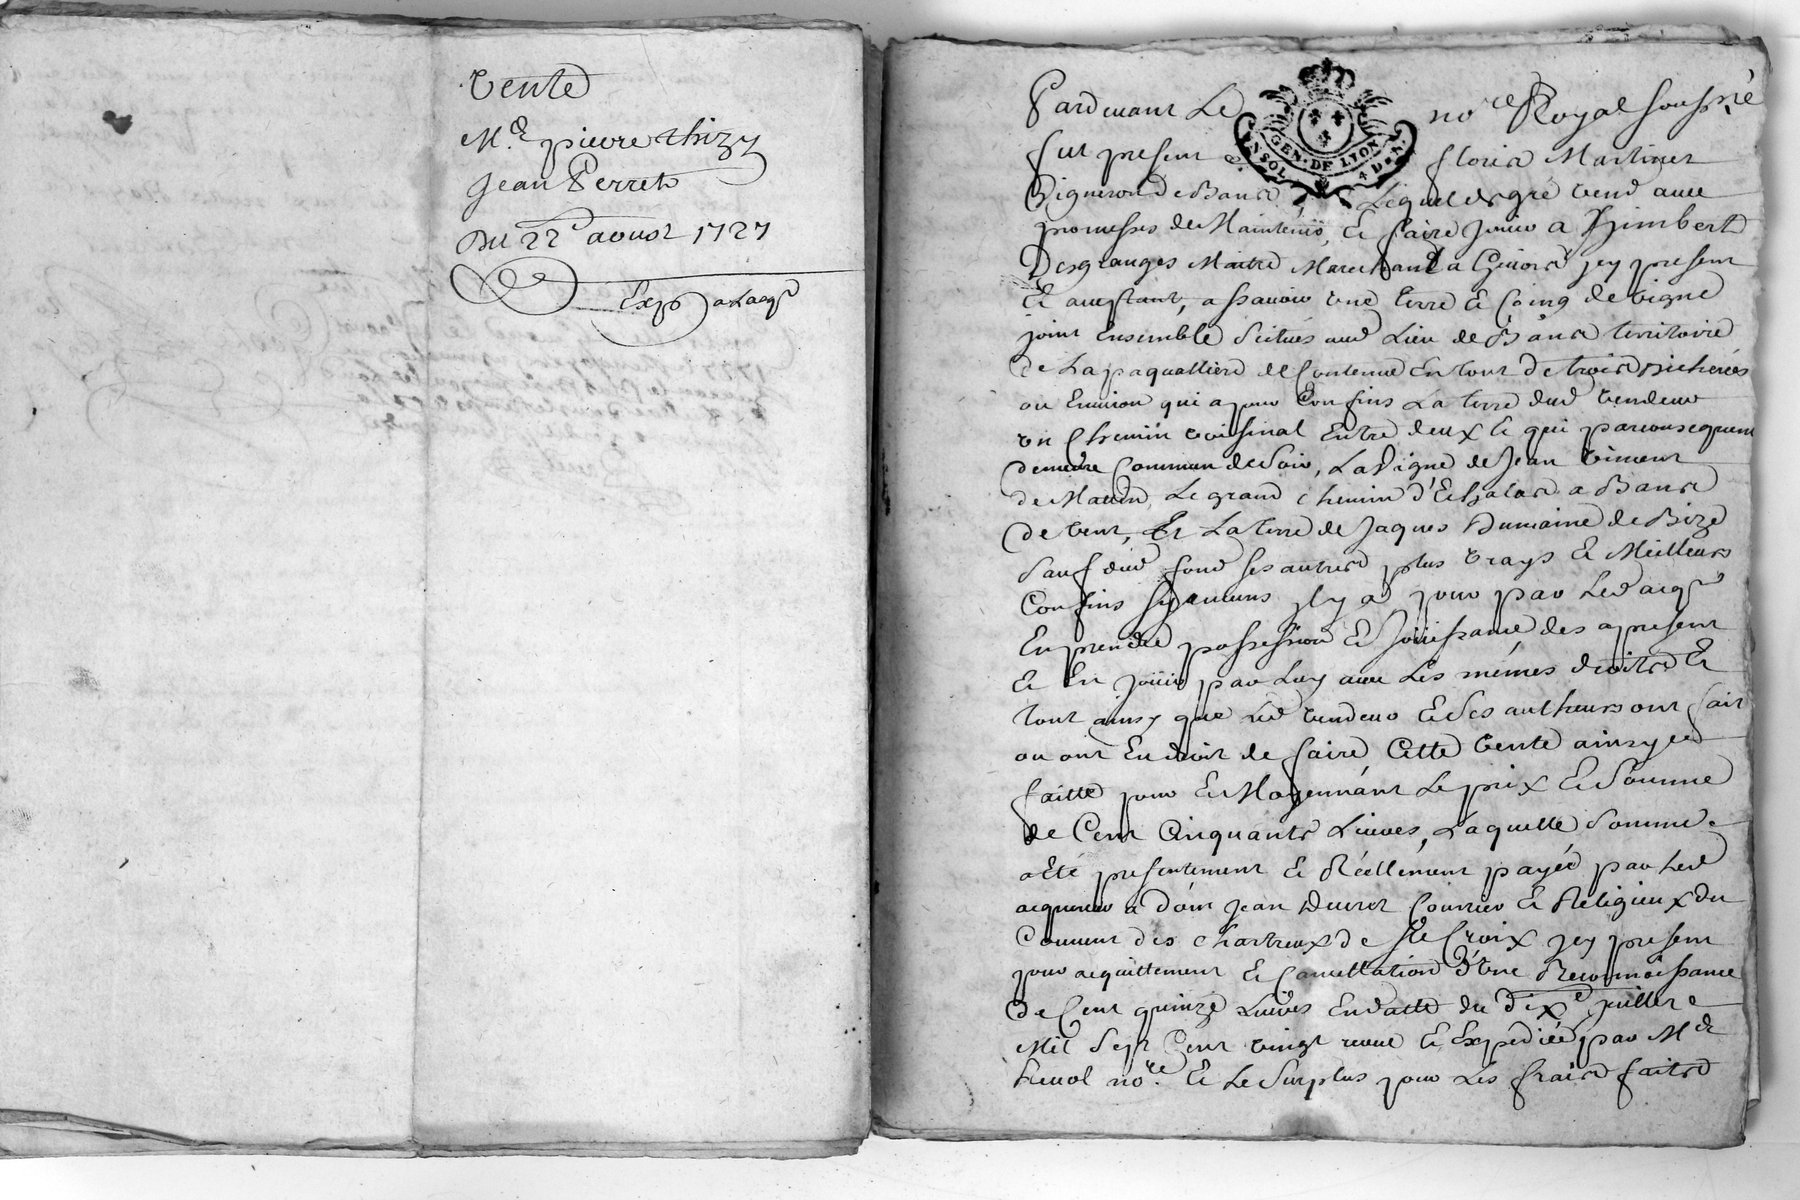 Vente
Me. pierre thizy
Jean Perret
Du 22e aoust 1727
Exp a Lacqr
Pardevant Le nore Royal soussné
fut present floris Martinet
Vigneron de Bans Lequel de gré vend avec
promesses de Maintenir, Et faire Jouir a Himbert
Desgranges Maitre Marechand a Givors jcy present
Et acceptant, a sçavoir une terre Et Coing de vigne
joint Ensemble Scitués aud Lieu de Bans territoire
de La paquattiere de Contenue En tout de trois bicherées
ou Environ qui a pour Confins La terre dud vendeur
un Chemin voisinal Entre deux Et qui par consequent
demeure Commun de Soir, La Vigne de Jean
de Matin, Le grand chemin d'Echalas a Bans
de vent, Et La terre de Jaques Dumaine de Bize
Sauf dud fond ses autres plus vrays Et Meilleurs
Confins sy aucuns jl y a pour par Led acqr
En prendre possession Et Joüissance des apresent
Et En Joüir par Luy avec Les mémes droits Et
tout ainsy que Led vendeur Et Ses autheurs ont fait
ou ont Eu droit de faire Cette Vente ainsy
faitte pour Et Moyennant Le prix Et Somme
de Cent Cinquante Livres, Laquelle Somme
a Eté presentement Et Réellement payée par Led
acquereur a Dom Jean Courrier Et Religieux du
Couvent des chartreux de Ste Croix jcy present
pour acquittement Et Cancellation d'Une Reconnoissance
de Cent quinze Livres En datte du dixe juillet
Mil Sept Cent vingt receue Et Expediée par Me
nore. Et Le Surplus pour Les frais faits
GEN. DE LYON